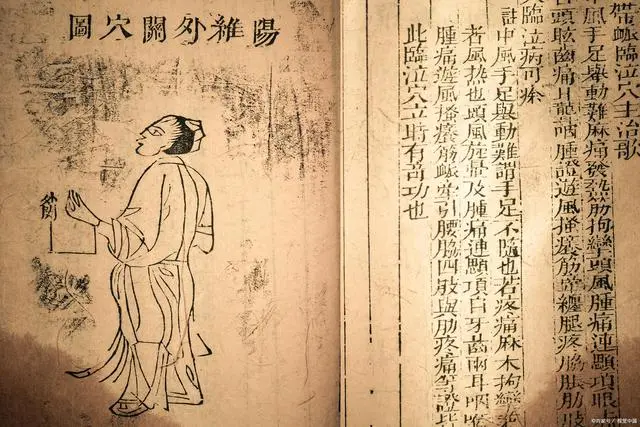 陽維外關穴圖
外關
帶䘑臨泣穴主治歌
中風手足舉動難麻痛發熱筋拘攣頭風腫痛連顋項眼
頭眩齒痛耳聾咽腫證遊風搔癢筋牽纏腿疼脇脹肋肢
臨泣病可瘳
註中風手足舉動難謂手足不隨也若疼痛麻木拘攣
者風熱也頭風旋暈及腫痛連顋項目牙齒兩耳咽喉
腫痛遊風搔癢筋䘑牽引腰脇四肢與肋疼痛等證
此臨泣穴立時有奇功也